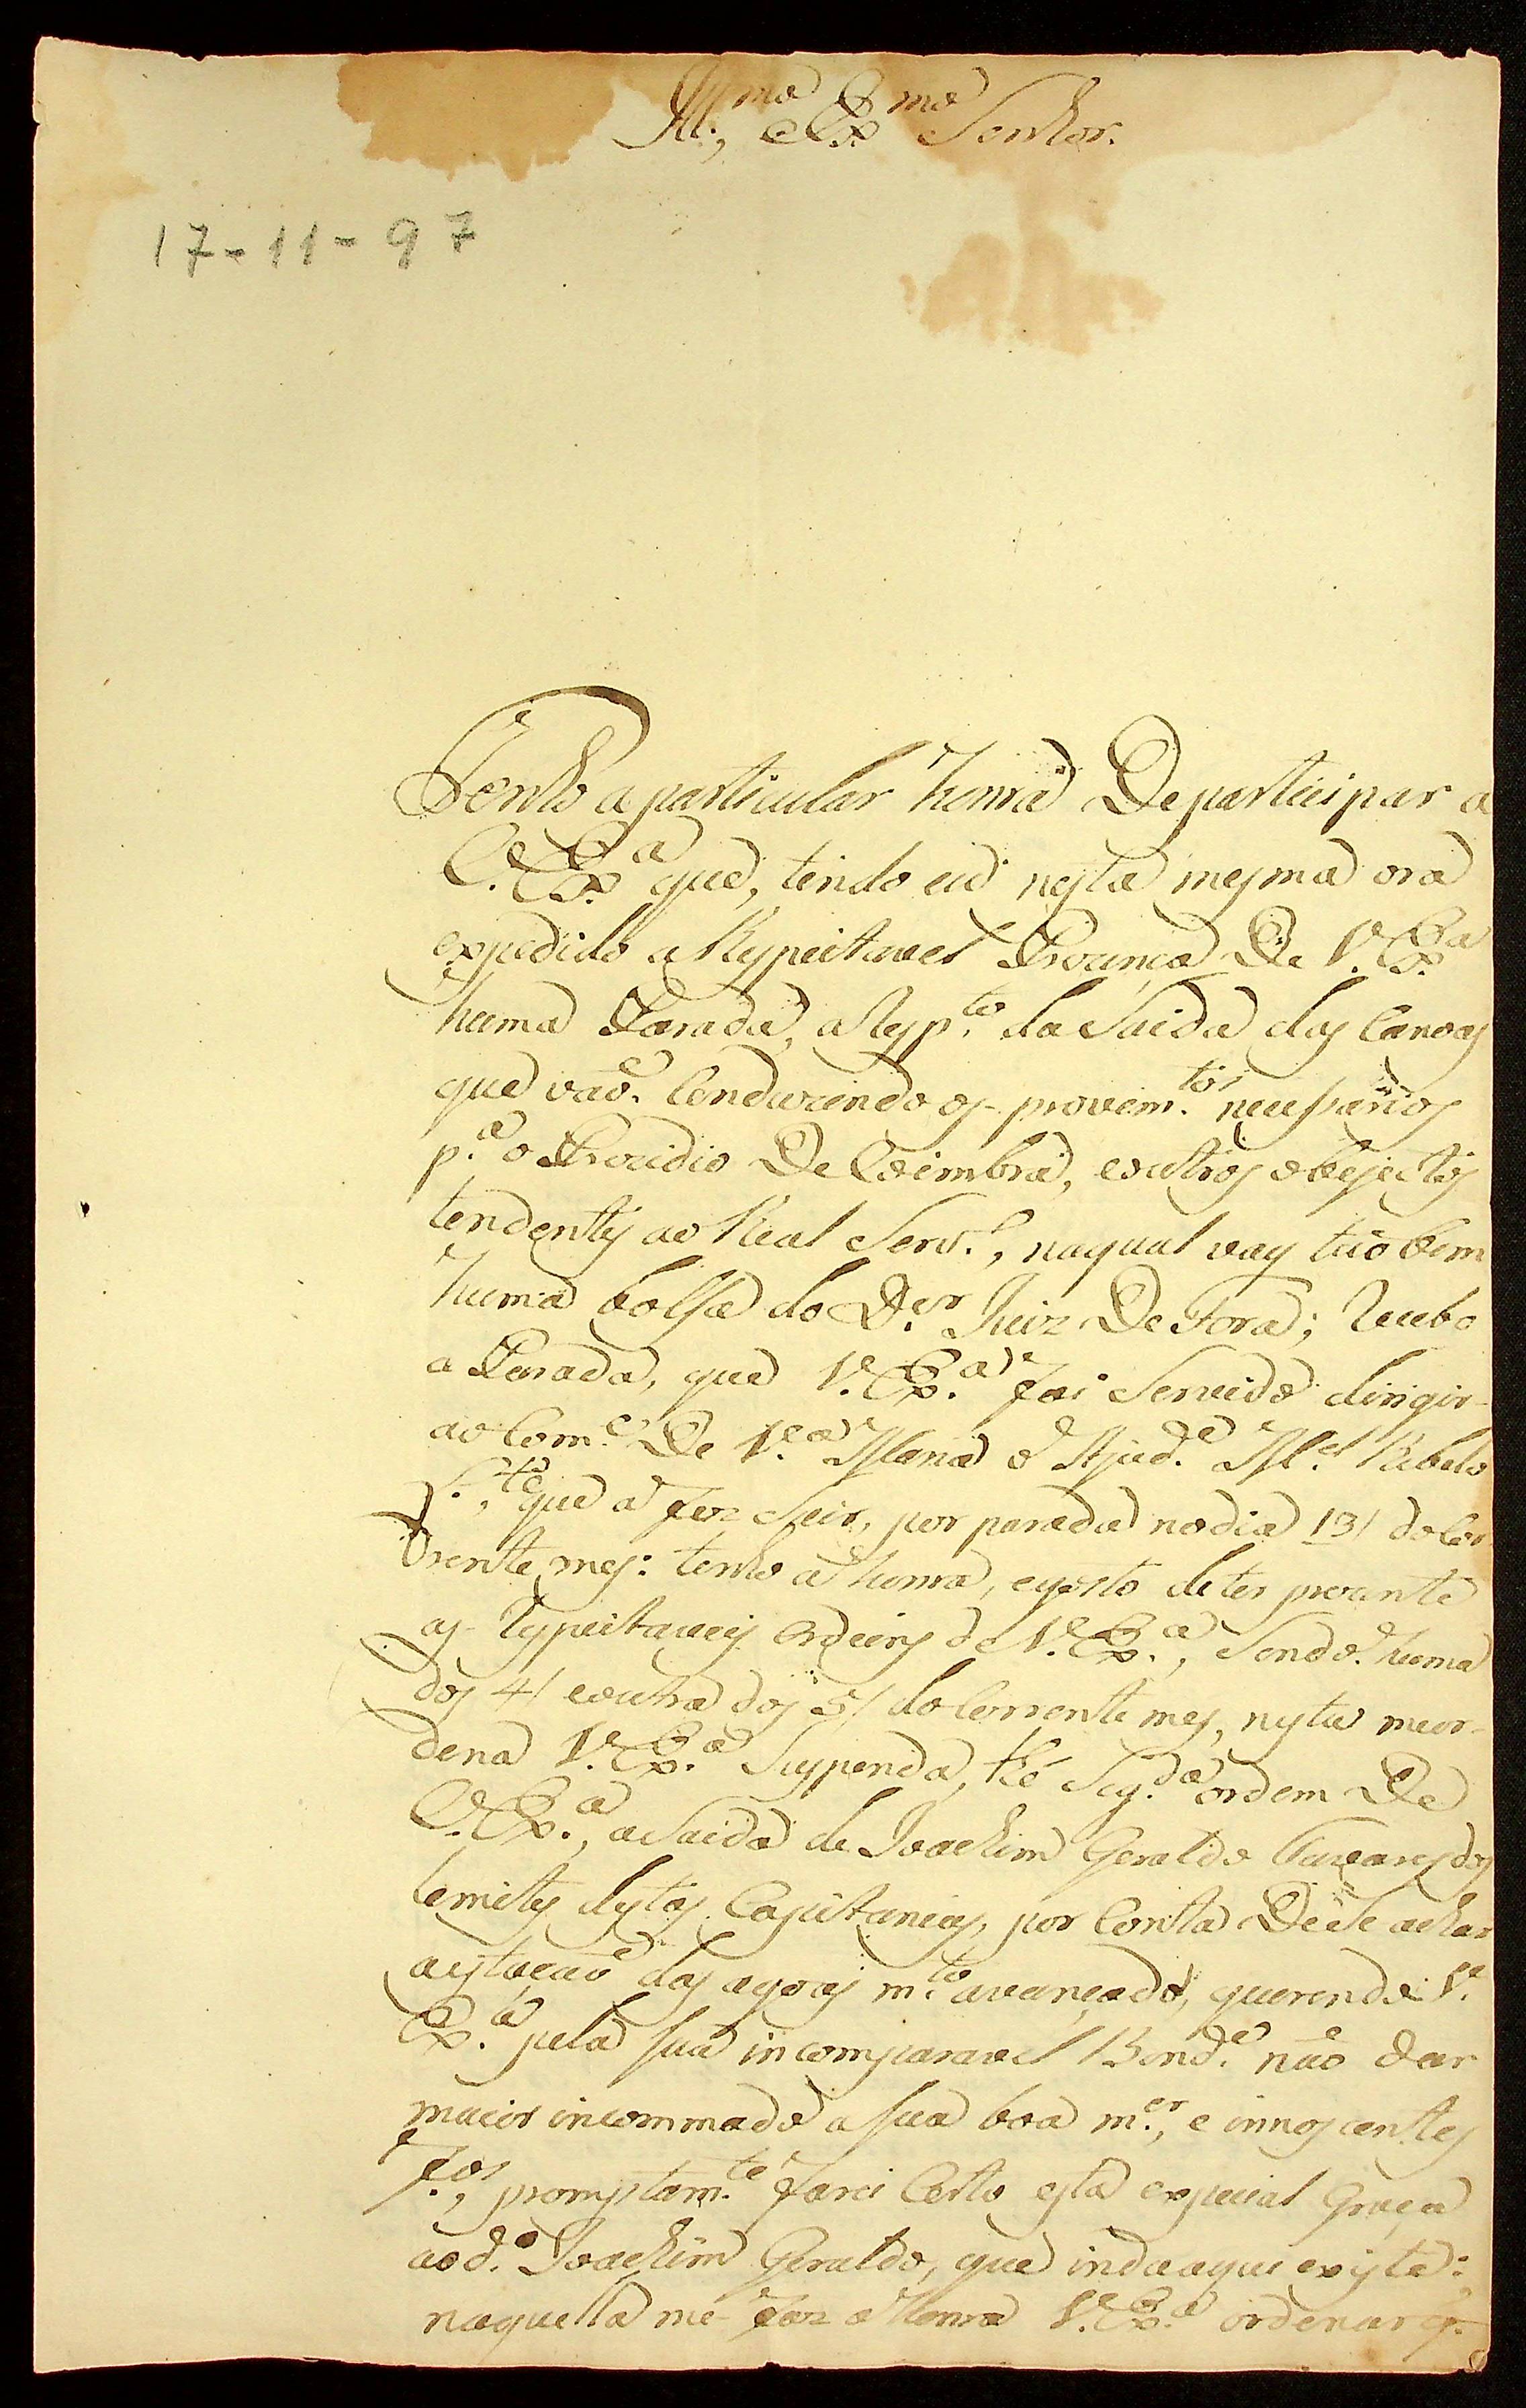 Ill.mo, e Ex.mo Senhor.
17-11-97
Tenho a particular honra De participar a
V. Ex.a que, tendo eu nesta mesma ora
expedido a Respeitavel Prezença De V. Ex.a
huma Parada, a Resp.to da Saida das Canoas
que vaõ Conduzindo os provim.tos necessarios
p.a o Prezidio De Coimbra, e outros objectos
tendentes ao Real Serv.o, na qual vay taõ bem
huma bolsa do D.or Juiz De Fora; Recebo
a Parada, que V. Ex.a foi Servido dirigir
ao Com.e De V.a Maria o Ajud.e M.el Rebelo
L.te, que a fez Seir, por parada no dia 13/ do Cor
rente mes: tenho a honra, e gosto de ter prezente
as Respeitaveis Ordens de V. Ex.a, Sendo huma
dos 4/ e outra dos 5/ do Corrente mes, nesta me or-
dena V. Ex.a Suspenda, thé Seg.da ordem De
V. Ex.a, a Saida de Joachim Geraldo Tavares dos
Lemites destas Capitanias, por Conta De Se achar
a estaçaõ das agoas m.to avançada, querendo V.
Ex.a pela sua incomparavel Bond.e naõ dar
maior incommodo a sua boa m.er, e innoscentes
f.os, promptam.te farei Certo esta especial Graça
ao d.o Joachim Geraldo, que inda aqui existe:
naquella me faz a honra V. Ex.a ordenar q.